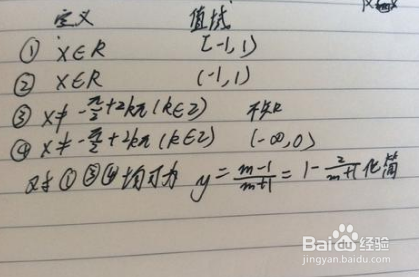 定义 值域
① x∈R [-1,1)
② x∈R (-1,1)
③ x≠-π/2+2kπ(k∈Z)
④ x≠-π/2+2kπ(k∈Z) (-∞,0)
对于①③④均可为 y=m-1/m+1=1-2/m+1化简
Baidu经验
jingyan.baidu.com